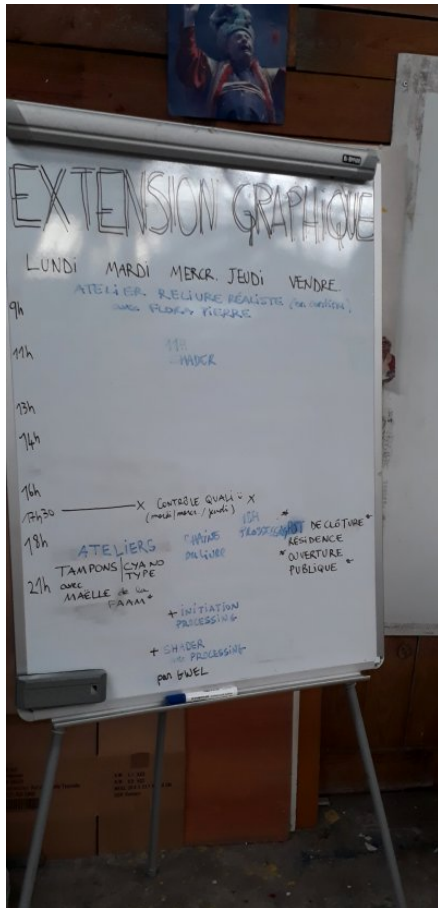 EXTENSION GRAPHIQUE
LUNDI MARDI MERCR. JEUDI VENDRE.
ATELIER RELIURE RÉALISTE
9h avec FLORA PIERRE
11h 11H
SHADER
13h
14h
16h
17h30 X CONTRÔLE QUALI X
(mardi/mercr./jeudi)
18h
ATELIERS
TAMPONS | CYANO
TYPE
avec
21h MAËLLE de la
PAAM*
CHAÎNE
DU LIVRE
18H
DE CLÔTURE*
RÉSIDENCE
*OUVERTURE
PUBLIQUE*
+ INITIATION
PROCESSING
+ SHADER
PROCESSING
par GWEL